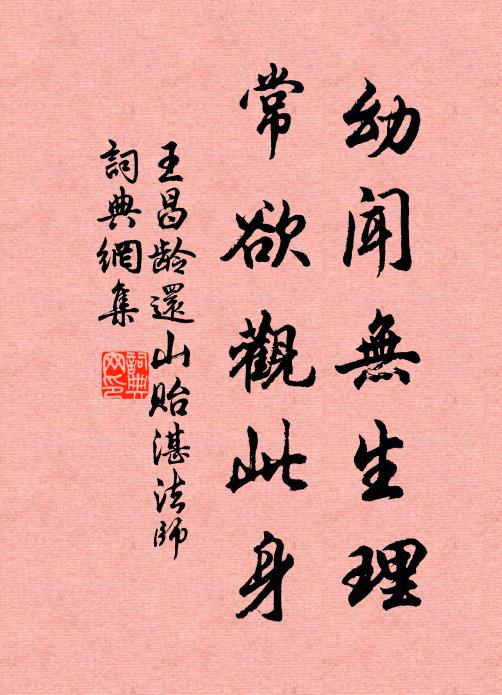 幼聞無生理
常欲觀此身
王昌龄還山貽湛法師
詞典網集
詞典網印